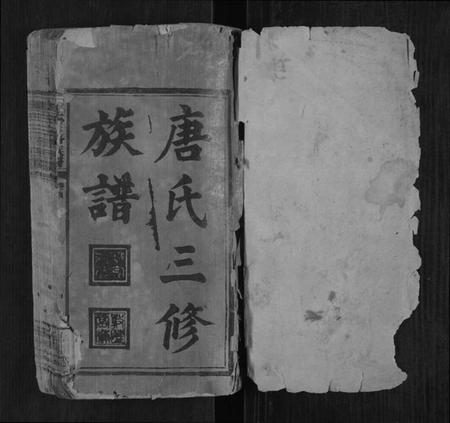 唐氏三修
族譜